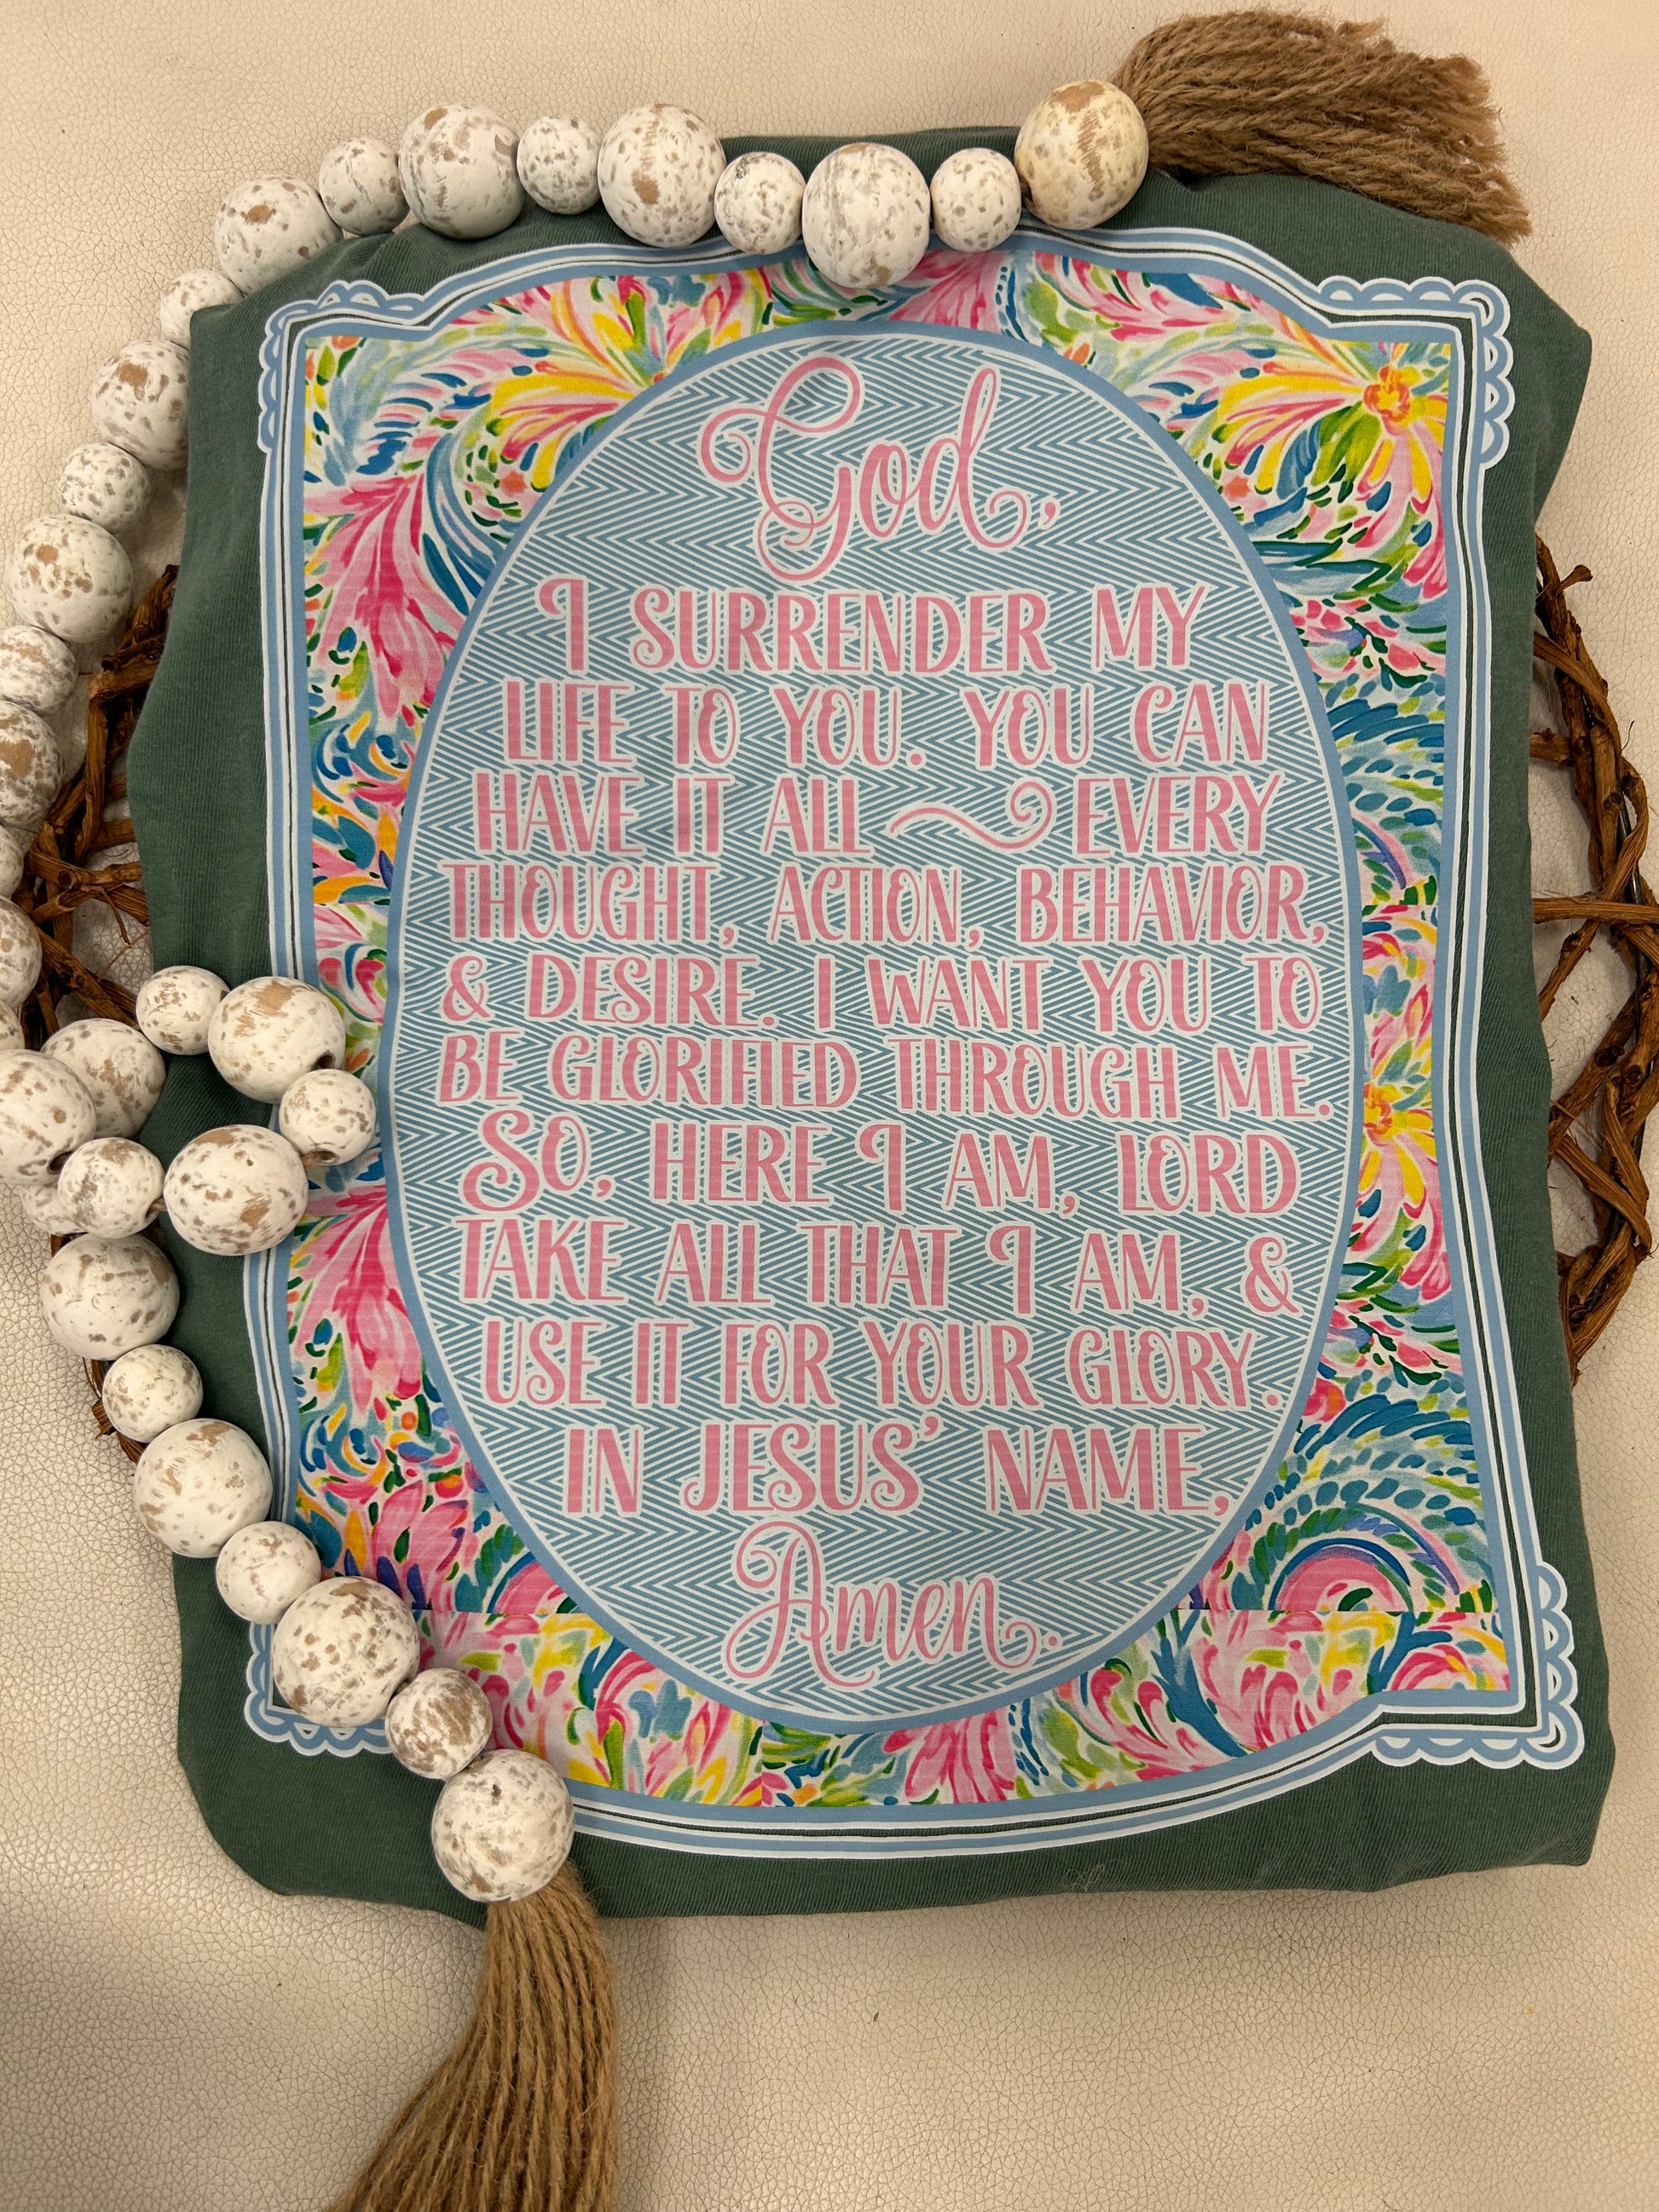 God,
I SURRENDER MY
LIFE TO YOU. YOU CAN
HAVE IT ALL ~ EVERY
THOUGHT, ACTION, BEHAVIOR,
& DESIRE. I WANT YOU TO
BE GLORIFIED THROUGH ME.
SO, HERE I AM, LORD
TAKE ALL THAT I AM, &
USE IT FOR YOUR GLORY.
IN JESUS' NAME,
Amen.